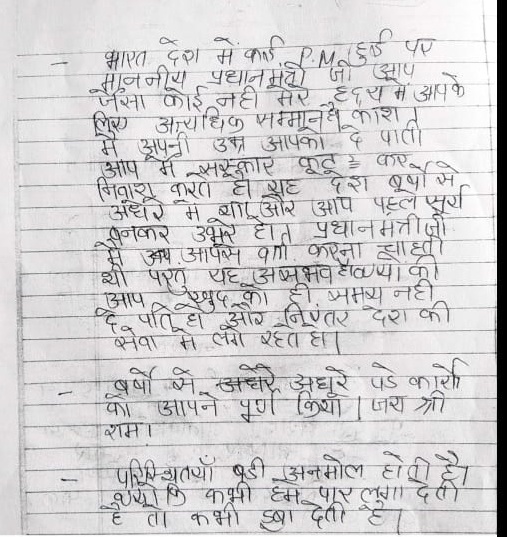 - भारत देश में कई P.M. हुई पर
माननीय प्रधानमंत्री जी आप
जैसा कोई नही मेरे हृदय में आपके
लिए अत्यधिक सम्मान है काश।
में अपनी उम्र आपको दे पाती
आप में संस्कार कूट = कर
निवास करते हो यह देश वर्षो से
अंधेरे में था और आप पहले सूर्य
बनकर उभरे हो। प्रधानमंत्री जी
मैं आपसे करना चाहती
थी परंतु यह असंभव है क्यों की
आप खुद को ही समय नही
दे पाते हो और निरंतर देश की
सेवा में लगे रहते हो।
- वर्षो से अधूरे पडे कार्यो
को आपने पूर्ण किया। जय श्री
राम।
- परिस्थितियाँ बडी अनमोल होती है।
क्यों कि कभी हमे पार लगा देती
है तो कभी डूबा देती है।